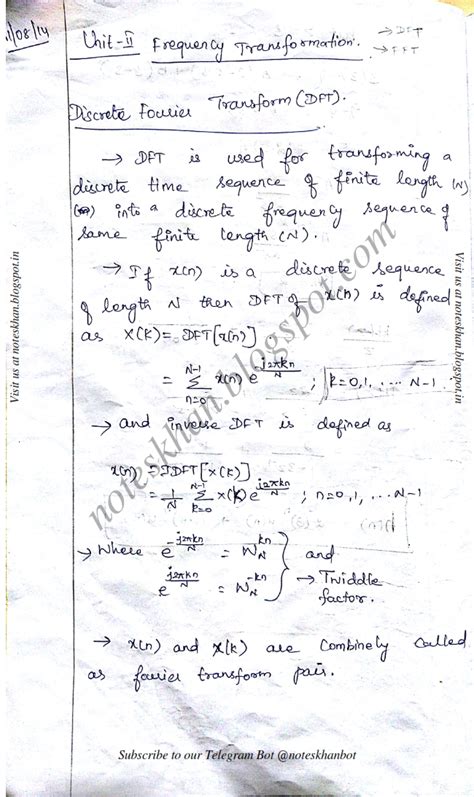 1/08/14
Unit-II Frequency Transformation.
→ DFT
→ FFT
Discrete Fourier Transform (DFT).
→ DFT is used for transforming a
discrete time sequence of finite length (N)
into a discrete frequency sequence of
same finite length (N).
→ If x(n) is a discrete sequence
of length N then DFT of x(n) is defined
as X(K) = DFT[x(n)]
= N-1 Σ n=0 x(n) e^-j2πkn/N ; k=0,1, .... N-1.
→ and inverse DFT is defined as
x(n) = IDFT[X(K)]
= 1/N N-1 Σ k=0 X(k) e^j2πkn/N ; n=0,1, ... N-1
→ Where e^-j2πkn/N = W_N^kn } and
e^j2πkn/N = W_N^-kn → Twiddle
factor.
→ x(n) and X(k) are Combinely Called
as fourier transform pair.
Visit us at noteskhan.blogspot.in
noteskhan.blogspot.com
Visit us at noteskhan.blogspot.in
Subscribe to our Telegram Bot @noteskhanbot